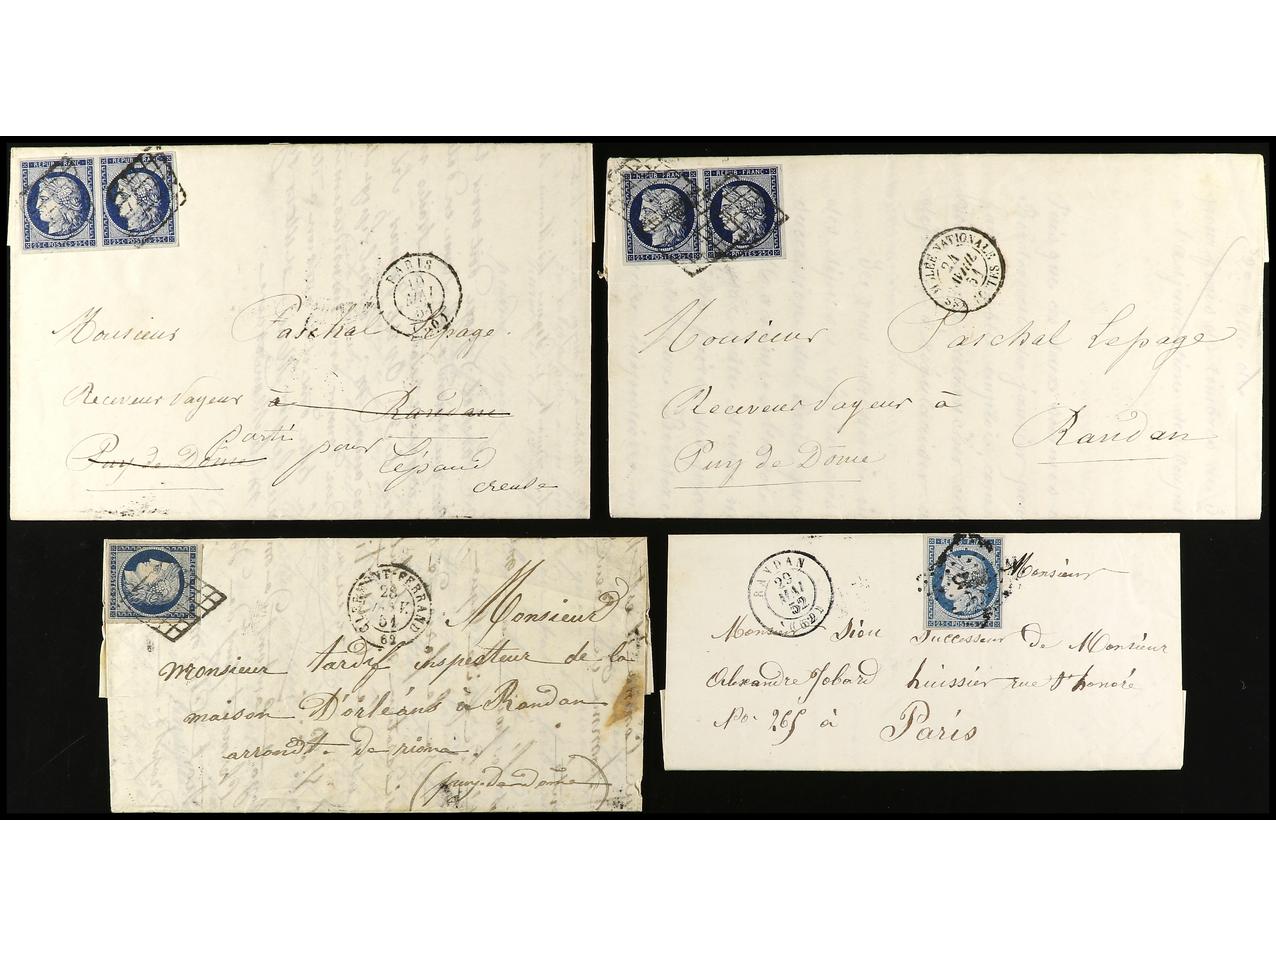 REPUB FRANC REPUB FRANC
25 C POSTES 25 C 25 C POSTES 25 C
PARIS
MAI
51
Monsieur Paschal Lepage.
Receveur Payeur à Randan
parti pour
Puy de Dôme Lépaud
creuse
REPUB FRANC REPUB FRANC
25 C POSTES 25 C POSTES 25 C
24
AVRIL
51
Monsieur Paschal Lepage
Receveur Payeur à
Randan
Puy de Dôme
CLERMONT-FERRAND
28
JANV.
51
62
Monsieur
monsieur tardif inspecteur de la
maison D'orléans à Randan
arrondt. de riom
(puy-de-dôme)
RANDAN
29
MAI
52
25 C POSTES 25 C
Monsieur
Monsieur Dion Successeur de Monsieur
Alexandre Jobard huissier rue St honoré
No. 265 à Paris